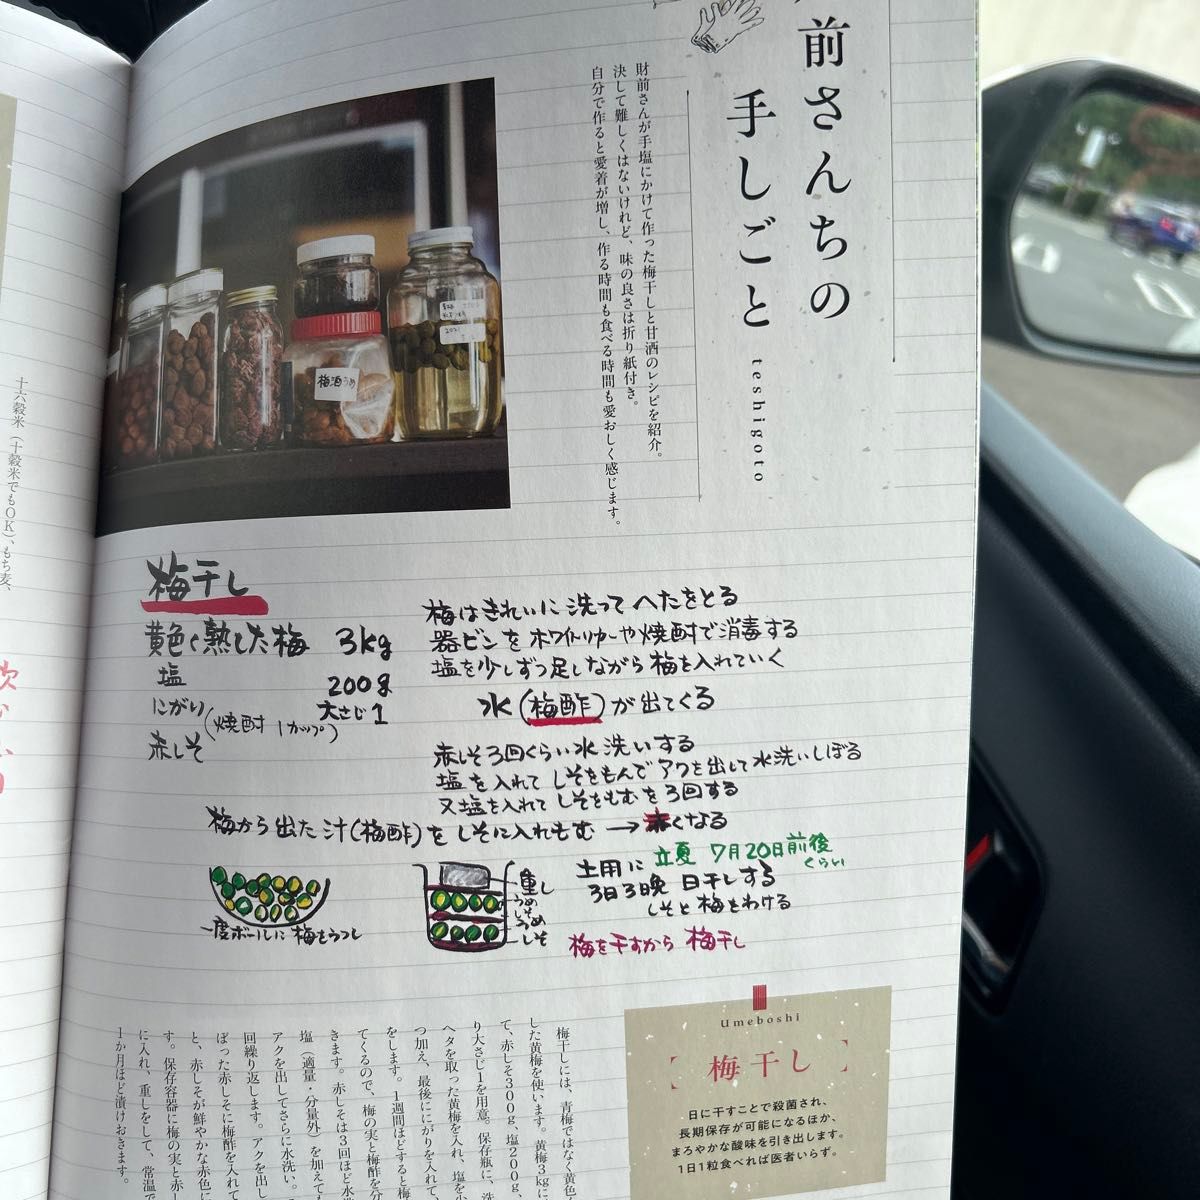 前さんちの
手しごと
teshigoto
財前さんが手塩にかけて作った梅干しと甘酒のレシピを紹介。
決して難しくはないけれど、味の良さは折り紙付き。
自分で作ると愛着が増し、作る時間も食べる時間も愛おしく感じます。
梅酒うめ
十六穀米（十穀米でもOK）、もち麦、
梅干し
黄色く熟した梅 3kg
塩 200g
にがり 大さじ1
(焼酎 1カップ)
赤しそ
梅はきれいに洗ってへたをとる
器ビンをホワイトリカーや焼酎で消毒する
塩を少しずつ足しながら梅を入れていく
水(梅酢)が出てくる
赤しそ3回くらい水洗いする
塩を入れてしそをもんでアクを出して水洗いしぼる
又塩を入れてしそをもむを3回する
梅から出た汁(梅酢)をしそに入れもむ→赤くなる
一度ボールに梅をうつし
重し
うめ
しそ
うめ
しそ
土用に 立夏 7月20日前後くらい
3日3晩 日干しする
しそと梅をわける
梅を干すから梅干し
梅干しには、青梅ではなく黄色
した黄梅を使います。黄梅3kgに
て、赤しそ300g、塩200g、
り大さじ1を用意。保存瓶に、洗
ヘタを取った黄梅を入れ、塩を少
つ加え、最後ににがりを入れて、
をします。1週間ほどすると梅
てくるので、梅の実と梅酢を分
きます。赤しそは3回ほど水
塩（適量・分量外）を加えて
アクを出してさらに水洗い。
回繰り返します。アクを出し
ぼった赤しそに梅酢を入れて
と、赤しそが鮮やかな赤色に
す。保存容器に梅の実と赤し
に入れ、重しをして、常温で
1か月ほど漬けおきます。
Umeboshi
【梅干し】
日に干すことで殺菌され、
長期保存が可能になるほか、
まろやかな酸味を引き出します。
1日1粒食べれば医者いらず。